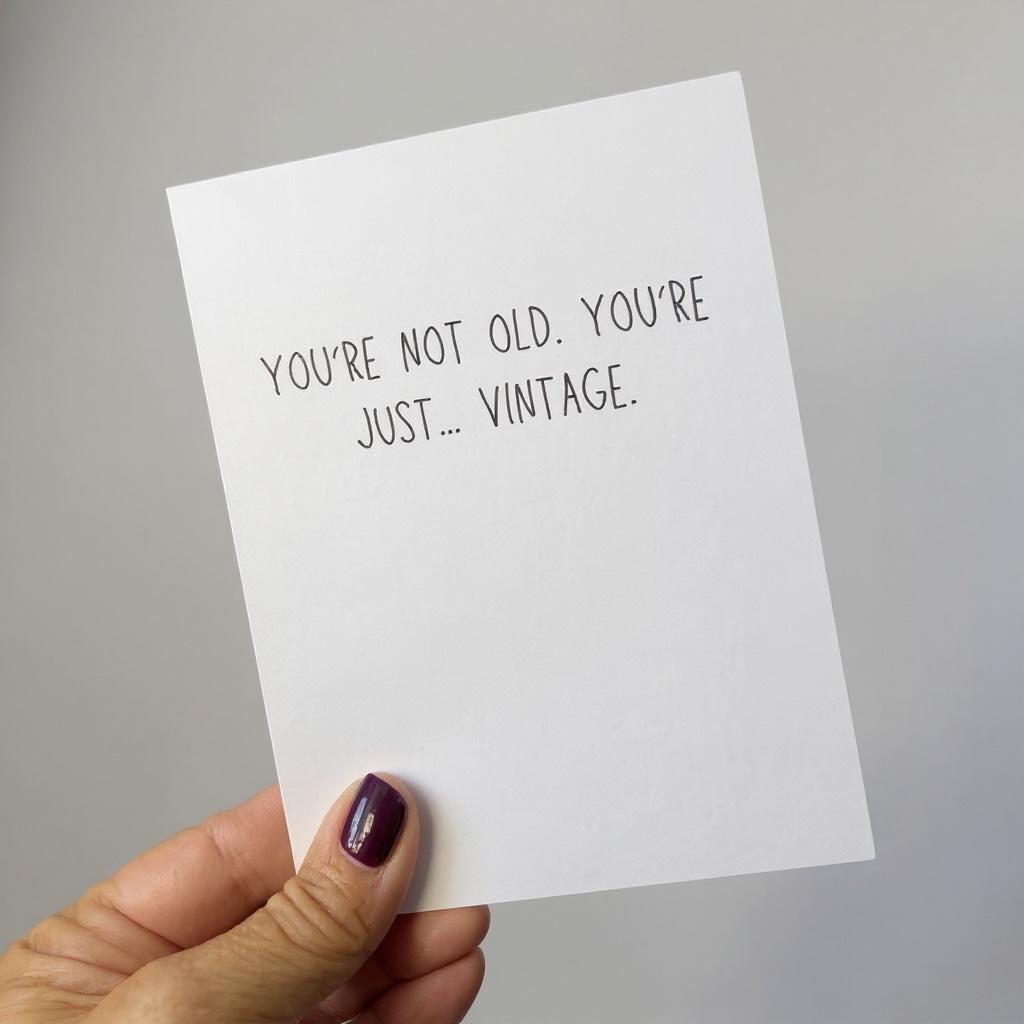 YOU'RE NOT OLD. YOU'RE
JUST... VINTAGE.